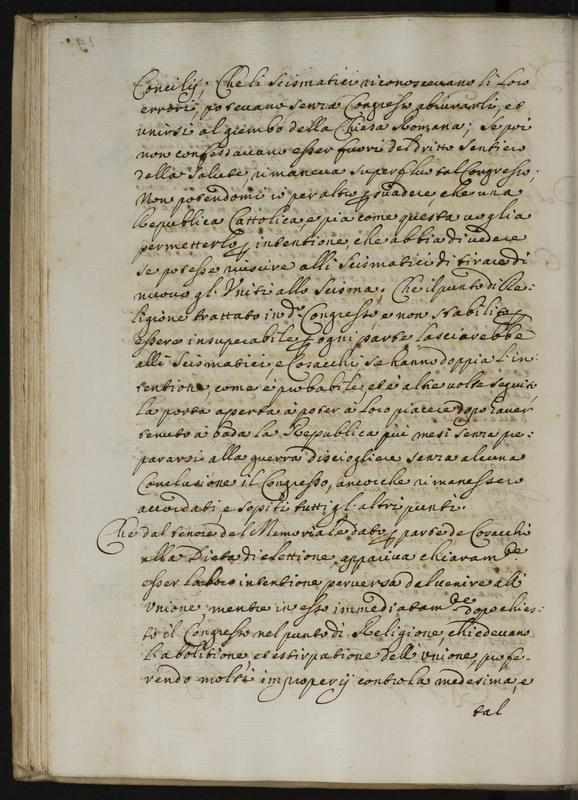 Concilij; Che li Scismatici riconoscevano li loro
errori, potevano senza Congresso abiurarli, et
unirsi al grembo della Chiesa Romana; Se poi
non confessavano esser fuori del dritto sentiero
della Salute rimaneva superfluo tal Congresso;
Non potendomi io per altro persuadere, che una
Republica Cattolica, e pia come questa voglia
permetterlo per intentione, che abbia di vedere
se potesse riuscire alli Scismatici di tirare di
nuovo gl'Uniti allo Scisma; Che il punto di Re-
ligione trattato in do. Congresso, e non stabilito per
essere insuperabile per ogni parte lasciarebbe
alli Scismatici, e Cosacchi, se hanno doppia l'in-
tentione, come è probabile, et altre volte seguì,
la porta aperta à poter à loro piacere dopo haver
tenuto à bada la Republica più mesi senza pre-
pararsi alla guerra disciogliere senza alcuna
Conclusione il Congresso, ancorche rimanessero
accordati e sopiti tutti gl'altri punti.
Che dal tenore del Memoriale dato per parte de Cosacchi
alla Dieta di elettione, appariva chiaramte
esser la loro intentione perversa del venire all'
Unione mentre in esso immediatamte dopo chies-
to il Congresso nel punto di Religione, chiedevano
l'abolitione et estirpatione dell'Unione, profe-
rendo molti improperij contro la medesima, e
tal